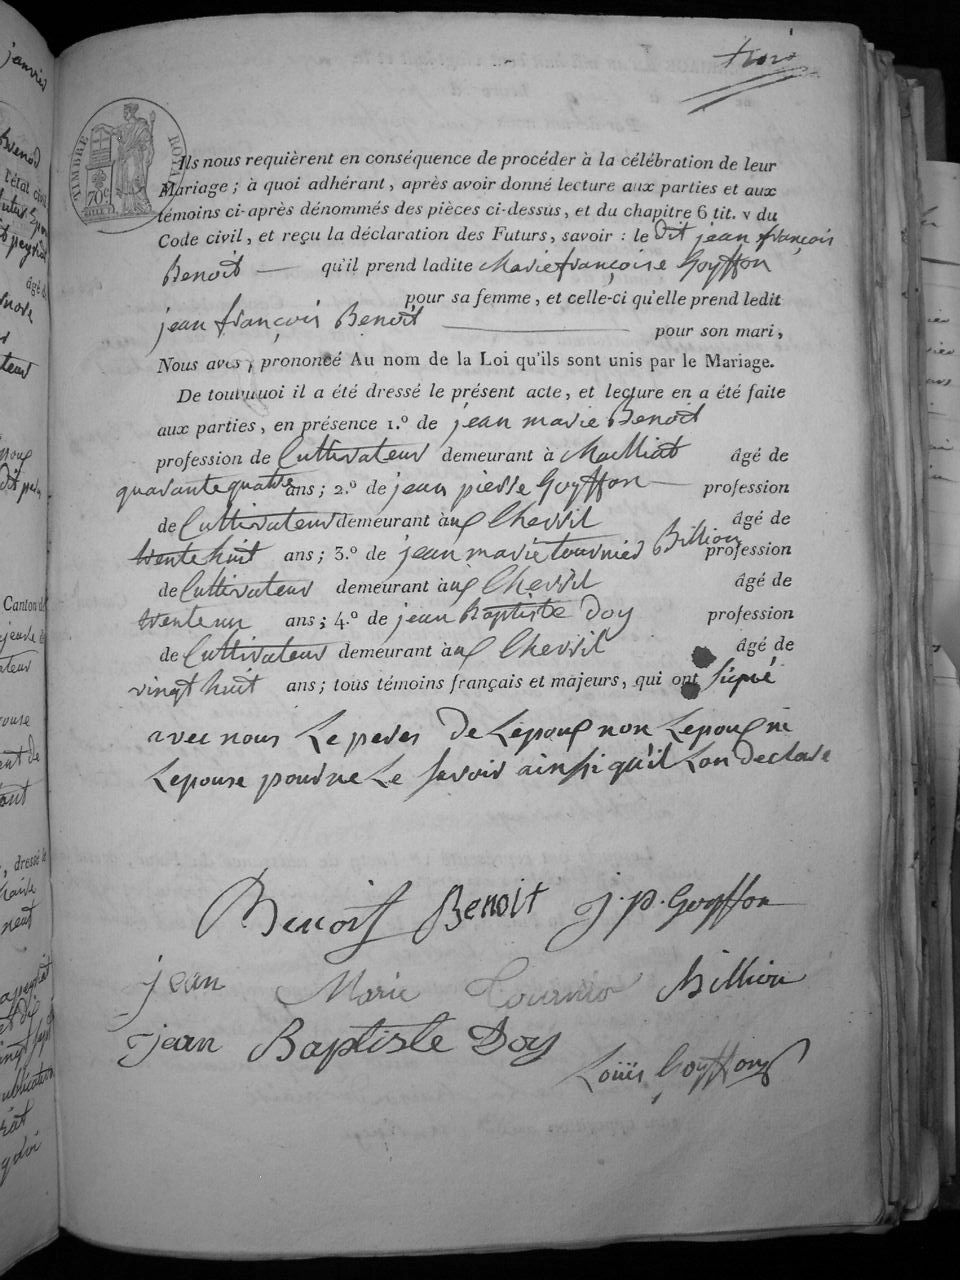 trois
TIMBRE ROYAL
70c
Ils nous requièrent en conséquence de procéder à la célébration de leur
Mariage ; à quoi adhérant, après avoir donné lecture aux parties et aux
témoins ci-après dénommés des pièces ci-dessus, et du chapitre 6 tit. v du
Code civil, et reçu la déclaration des Futurs, savoir : le dit jean françois
Benoit — qu'il prend ladite Marie françoise Goyffon
pour sa femme, et celle-ci qu'elle prend ledit
jean françois Benoit — pour son mari,
Nous avons prononcé Au nom de la Loi qu'ils sont unis par le Mariage.
De tout quoi il a été dressé le présent acte, et lecture en a été faite
aux parties, en présence 1.º de jean marie Benoit
profession de Cultivateur demeurant à Mailliat âgé de
quarante quatre ans ; 2.º de jean pierre Goyffon — profession
de Cultivateur demeurant àux Cherril âgé de
trente huit ans ; 3.º de jean marie tournier Billion profession
de Cultivateur demeurant àux Cherril âgé de
trente un ans ; 4.º de jean Baptiste Doy profession
de Cultivateur demeurant àux Cherril âgé de
vingt huit ans ; tous témoins français et majeurs, qui ont signé
avec nous Le peres De Lepoux non Lepoux ni
Lepouse pour ne Le savoir ainsi qu'il Lon declare
Benoit Benoit j. p. Goyffon
jean Marie Tournier Billion
jean Baptiste Doy
Louis Goyffon
janvier
Canton de
, dressé